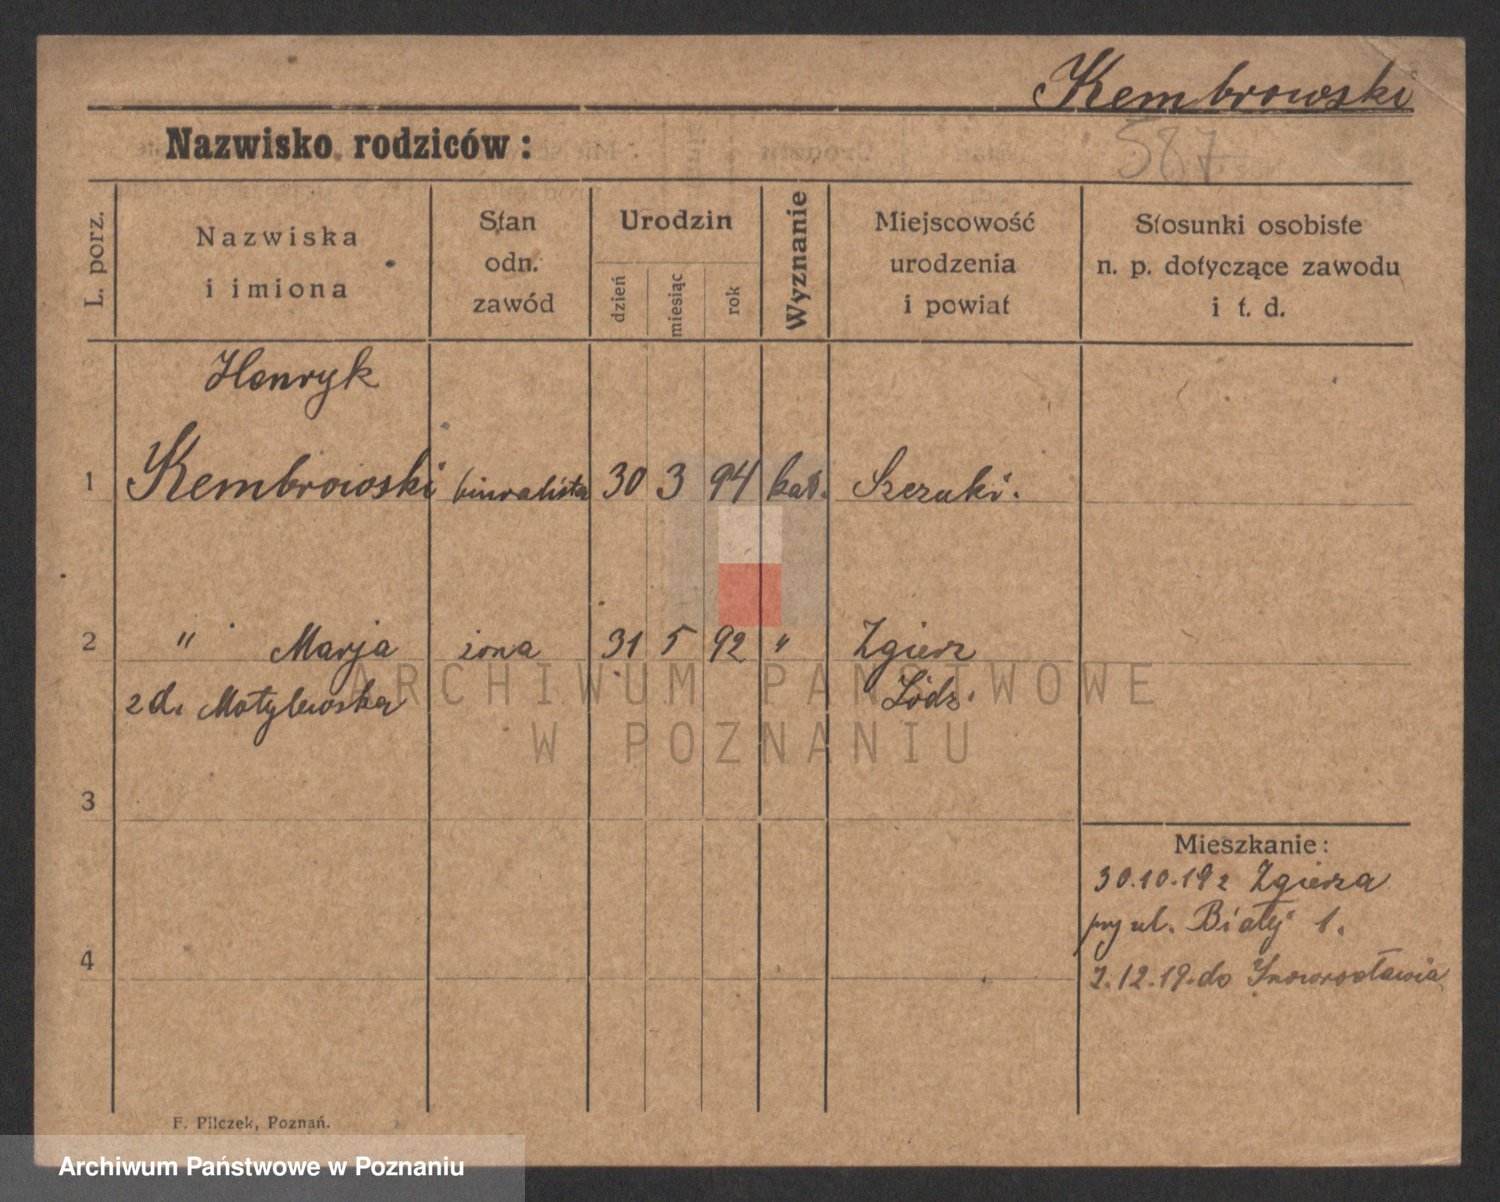 Kembrowski
587
Nazwisko rodziców:
L. porz.
Nazwiska
i imiona
Stan
odn.
zawód
Urodzin
dzień
miesiąc
rok
Wyznanie
Miejscowość
urodzenia
i powiat
Stosunki osobiste
n. p. dotyczące zawodu
i t. d.
Henryk
1 Kembrowski biuralista 30 3 94 kat. Szczuki.
2 " Marja żona 31 5 92 " Zgierz
zd. Motylewska Łódź.
3
Mieszkanie:
30.10.19 z Zgierza
przy ul. Białej 1.
4
2.12.19. do Inowrocławia
F. Pilczek, Poznań.
ARCHIWUM PAŃSTWOWE
W POZNANIU
Archiwum Państwowe w Poznaniu